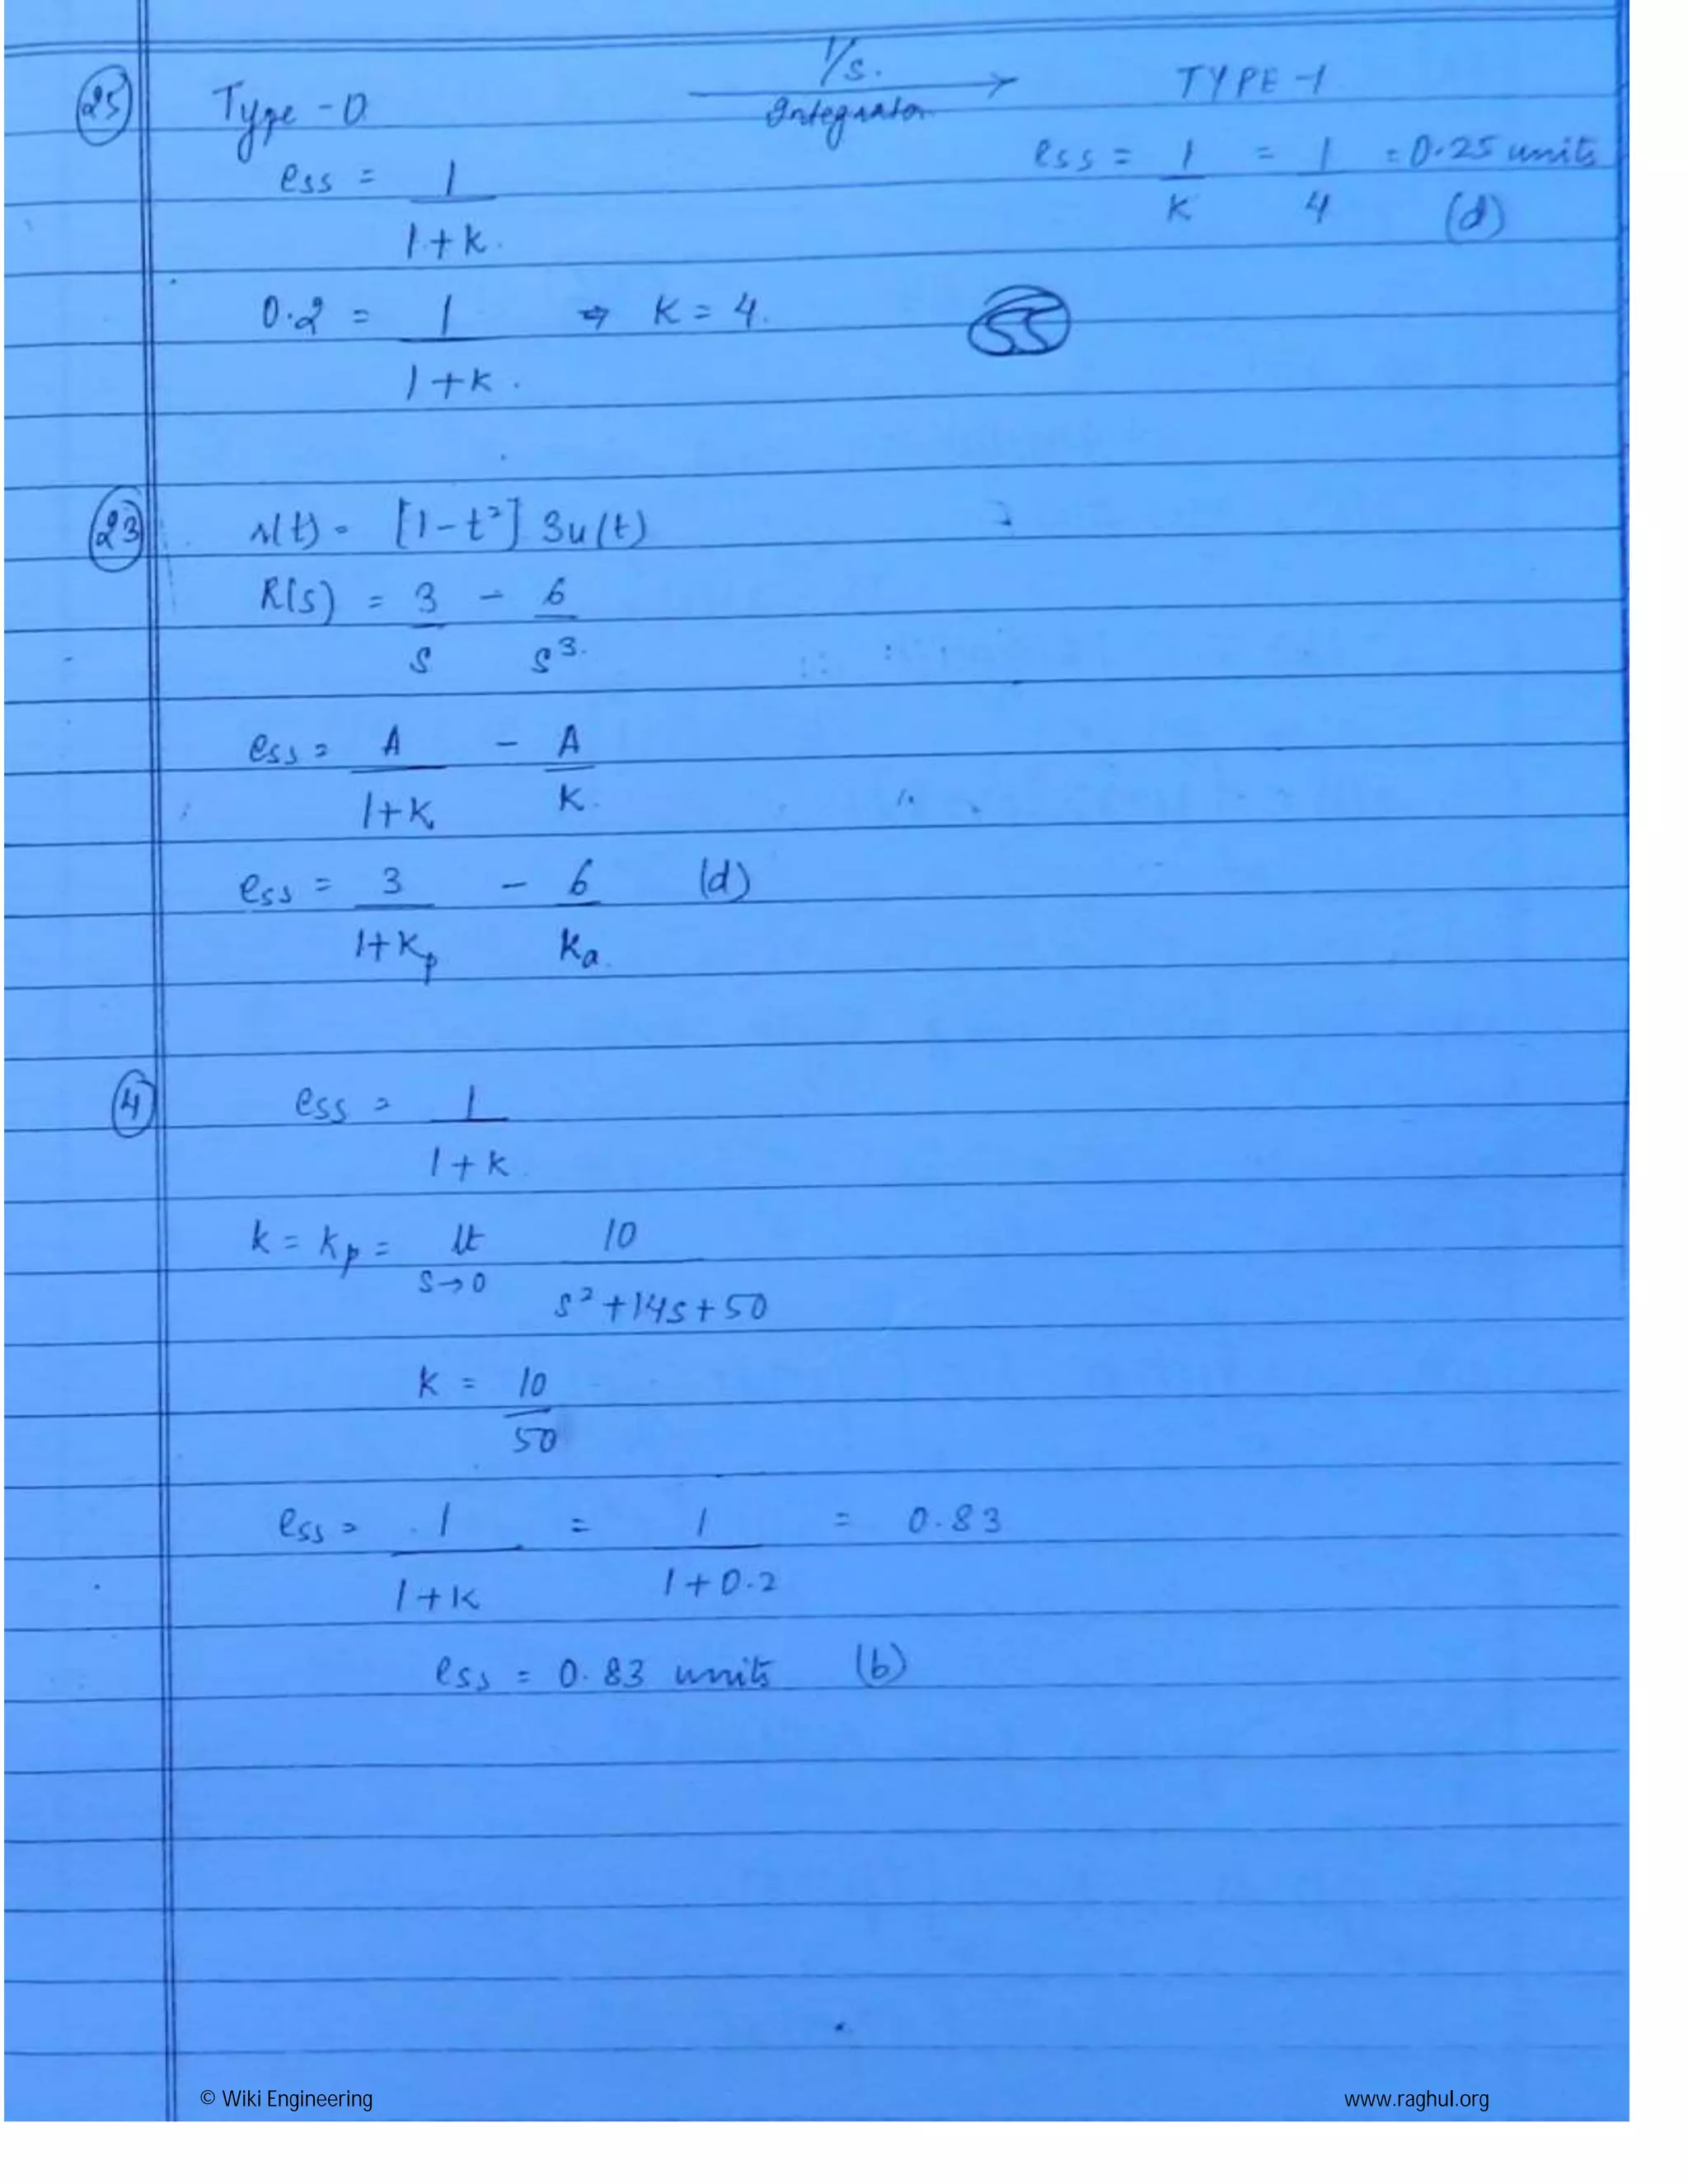 25 Type-0 1/s. Integrator → TYPE-1
ess = 1/(1+k). ess = 1/K = 1/4 = 0.25 units (d)
0.2 = 1/(1+k). ⇒ K = 4.
55
23 r(t) = [1-t²] 3u(t)
R(s) = 3/s - 6/s³.
ess = A/(1+K) - A/K.
ess = 3/(1+Kp) - 6/Ka. (d)
4 ess = 1/(1+k).
k = kp = lt s→0 10/(s²+14s+50)
K = 10/50
ess = 1/(1+K) = 1/(1+0.2) = 0.83
ess = 0.83 units (b)
© Wiki Engineering www.raghul.org